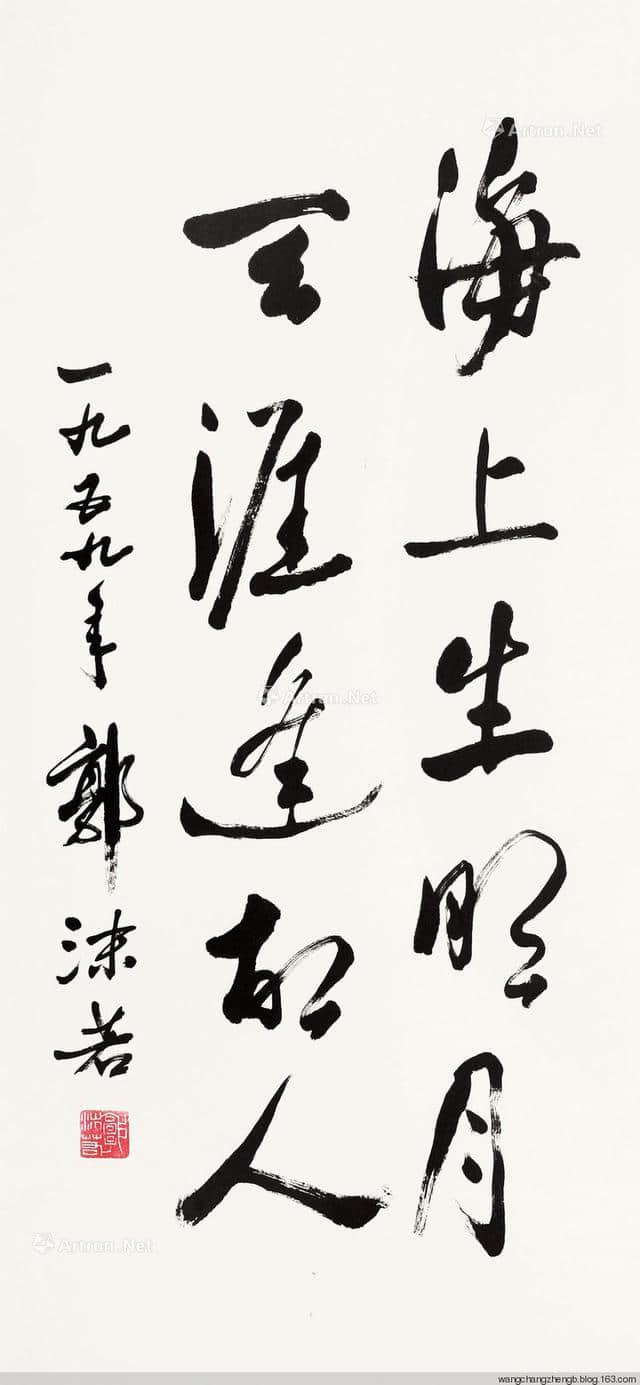 海上生明月
天涯逢故人
一九五九年 郭沫若
郭沫若
Artron.Net
Artron.Net
Artron.Net
wangchangzhengb.blog.163.com